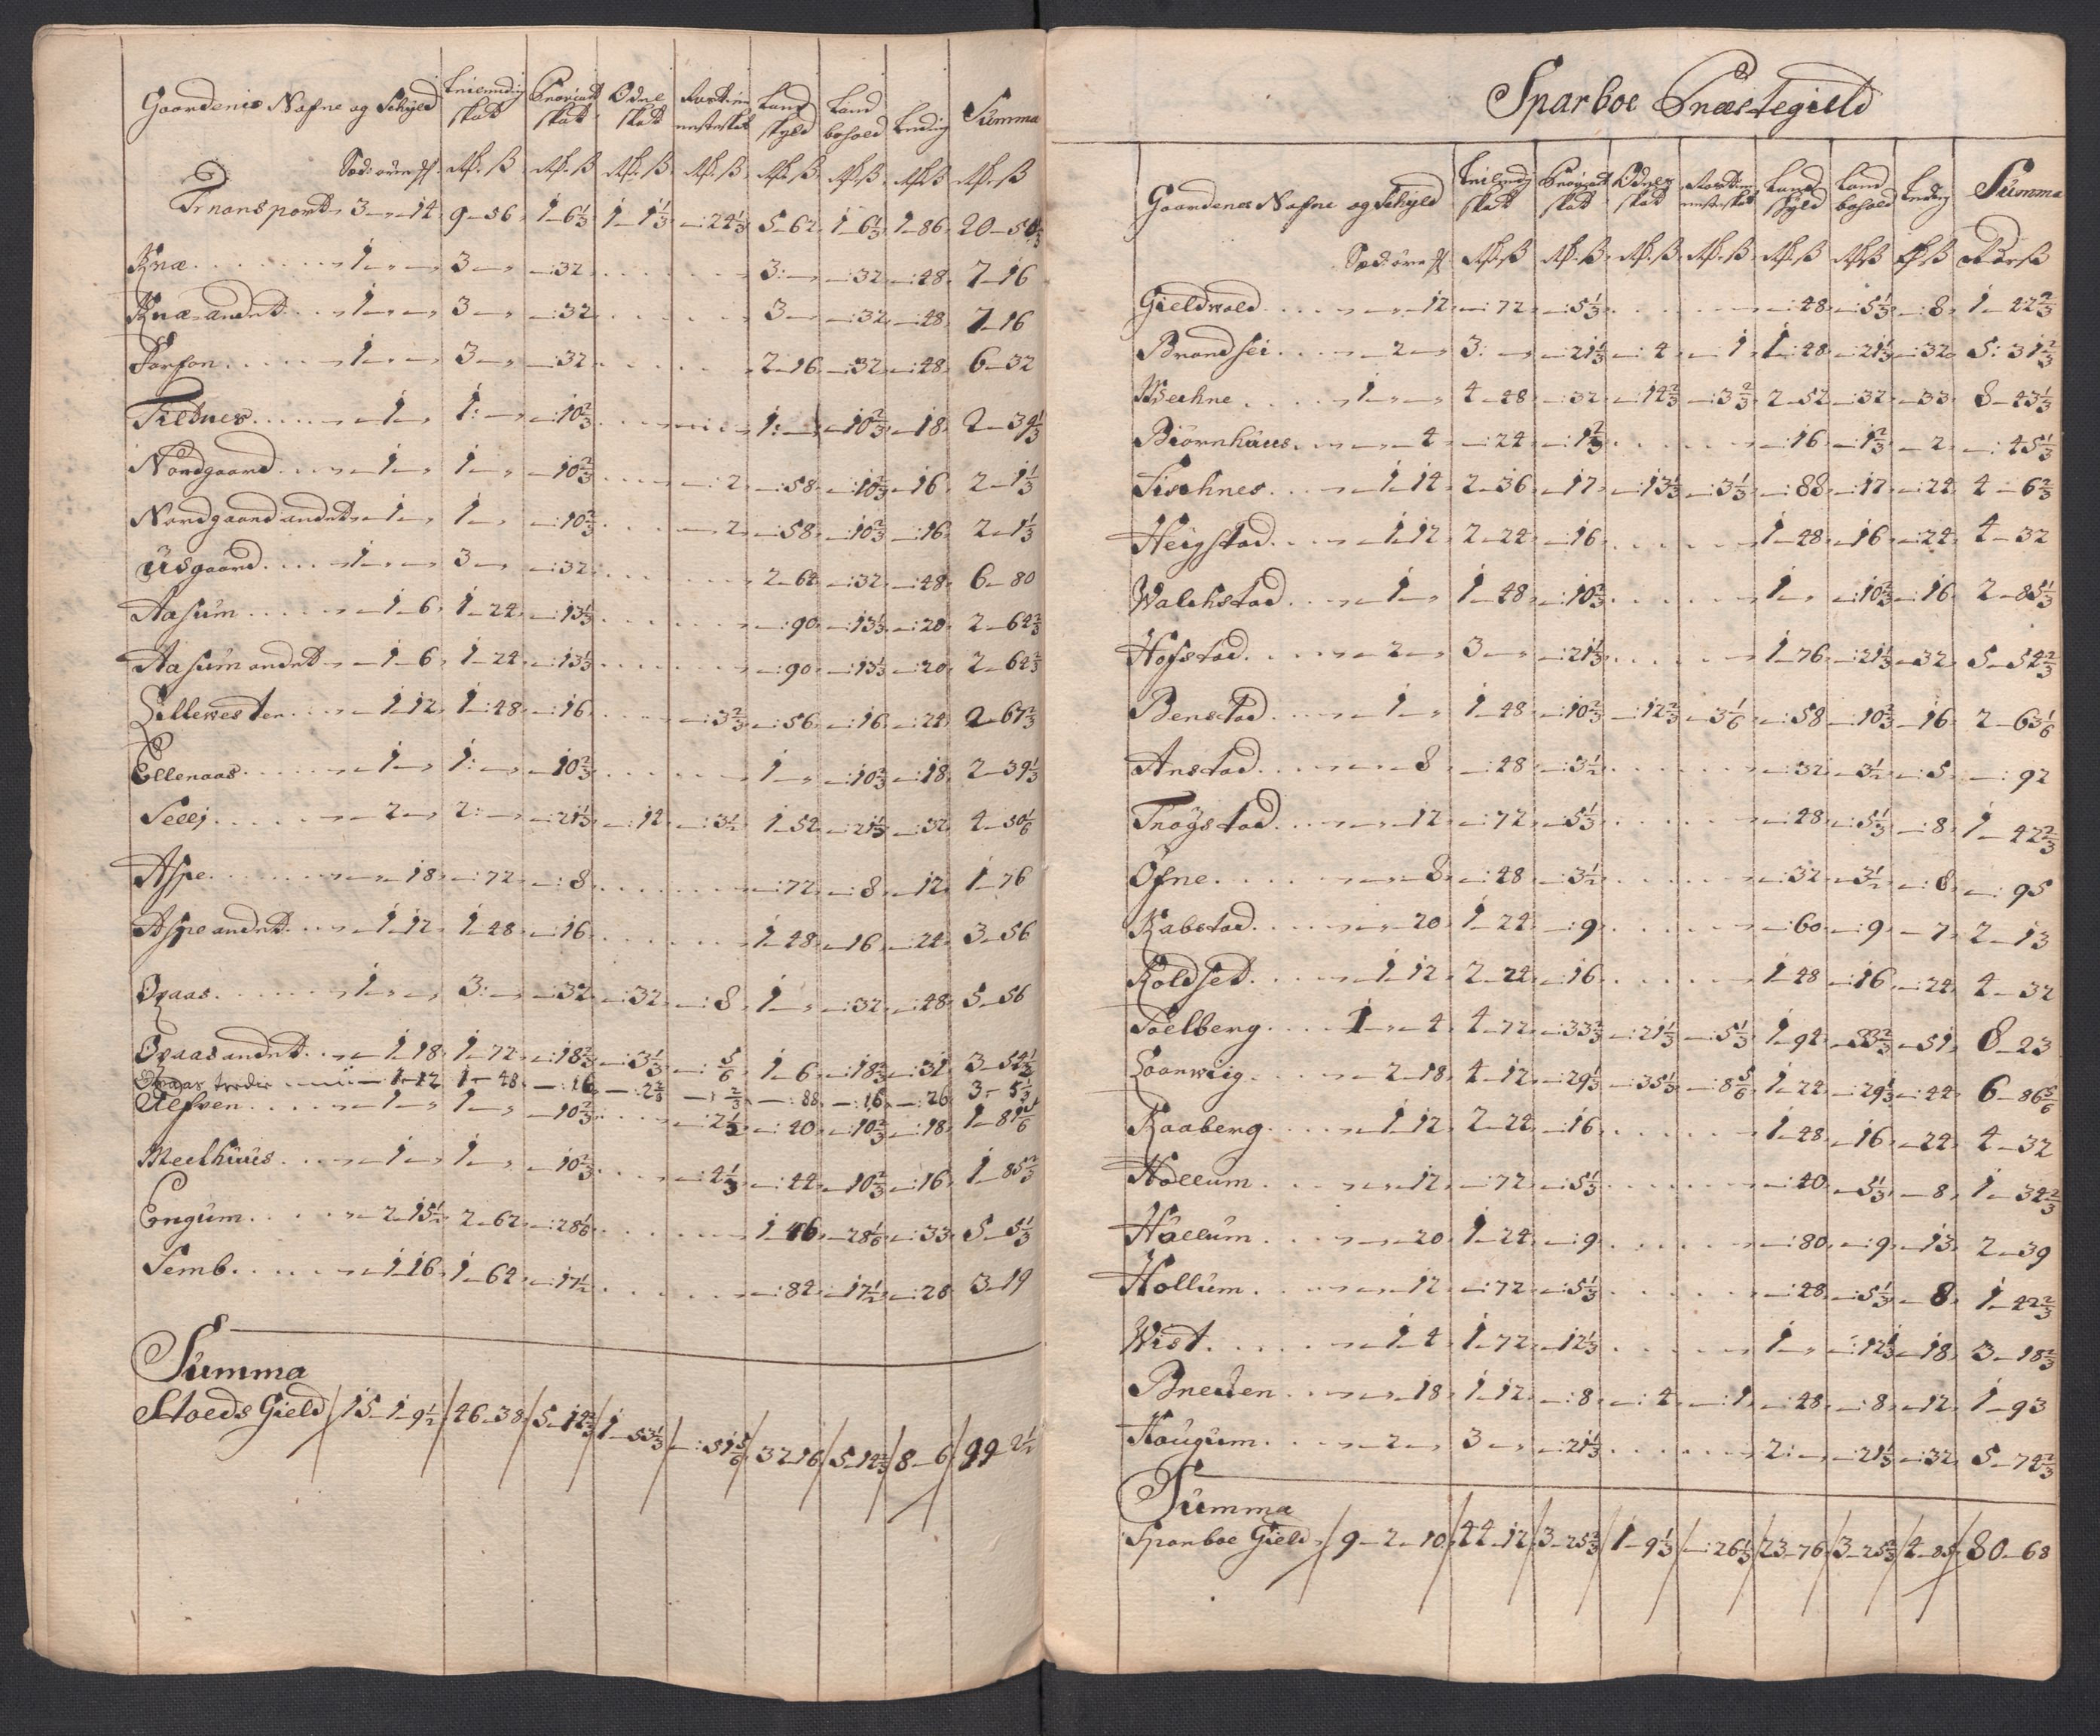 Gaardenes Nafne og Schyld | skat | skat | Odels skat | | Land skyld | Land bohold | Leding | Summa
Transport 3 - 14 | 9 - 56 | 1 - 6 1/3 | 1 - 1 1/3 | - : 24 1/3 | 5 - 62 | 1 - 6 1/3 | 1 - 86 | 20 -
Knæ 1 - - | 3 - | - : 32 | | | 3 : - | - : 32 | - : 48 | 7 - 16
Knæ andet 1 - - | 3 - | - : 32 | | | 3 - | - : 32 | - : 48 | 7 - 16
1 - - | 3 - | - : 32 | | | 2 - 16 | - : 32 | - : 48 | 6 - 32
Tildnes - 1 - | 1 : - | - : 10 2/3 | | | 1 : - | - 10 2/3 | - 18 | 2 - 39 1/3
Nordgaard - 1 - | 1 - | - 10 2/3 | | - : 2 | - : 58 | - : 10 2/3 | - 16 | 2 - 1 1/3
Nordgaard andet - 1 - | 1 - | - : 10 2/3 | | - 2 | - : 58 | - : 10 2/3 | - : 16 | 2 - 1 1/3
Üsgaard 1 - - | 3 - | - : 32 | | | 2 - 64 | - : 32 | - : 48 | 6 - 80
Aasum - 1 - 6 | 1 - 24 | - : 13 1/3 | | | - : 90 | - : 13 1/3 | - : 20 | 2 - 64 2/3
Aasum andet - 1 - 6 | 1 - 24 | - : 13 1/3 | | | - : 90 | - : 13 1/3 | - : 20 | 2 - 64 2/3
Lillewesten - 1 12 | 1 - : 48 | - : 16 | | - : 3 2/3 | - : 56 | - : 16 | - : 24 | 2 - 67 2/3
Ellenaas - 1 - | 1 : - | - 10 2/3 | | | 1 - | - : 10 2/3 | - : 18 | 2 - 39 1/3
Selej - 2 - | 2 : - | - : 21 1/3 | - : 12 | - : 3 1/2 | 1 - 52 | - 21 1/3 | - : 32 | 4 - 50 1/6
Aspe - - 18 | - : 72 | - : 8 | | | - : 72 | - : 8 | - 12 | 1 - 76
Aspe andet - 1 12 | 1 - 48 | - : 16 | | | 1 - 48 | - 16 | - : 24 | 3 - 56
Oxaas 1 - - | 3 : - | - : 32 | - : 32 | - : 8 | 1 - | - : 32 | - : 48 | 5 - 56
Oxaas andet - 1 18 | 1 - 72 | - : 18 2/3 | - : 3 1/3 | - : 5/6 | 1 - 6 | - : 18 2/3 | - : 31 | 3 - 54 1/2
Oxaas tredie - 1 - 12 | 1 - 48 | - : 16 | - : 2 2/3 | - : 2/3 | - : 88 | - : 16 | - : 26 | 3 - 5 1/3
Ulfven - 1 - | 1 - | - 10 2/3 | | - : 2 1/2 | - : 40 | - : 10 2/3 | - : 18 | 1 - 81 5/6
Meelhuus - 1 - | 1 - | - 10 2/3 | | - : 4 1/3 | - : 44 | - 10 2/3 | - : 16 | 1 - 85 2/3
Engum - 2 15 1/2 | 2 - 62 | - : 28 1/6 | | | 1 46 | - 28 1/6 | - : 33 | 5 - 5 1/3
Semb - 1 16 | 1 - 64 | - : 17 1/2 | | | - : 84 | - 17 1/2 | - : 28 | 3 - 19
Summa
Stoeds Gield / 15 - 1 - 9 1/2 / 46 - 38 / 5 - 14 2/3 / 1 - 53 1/3 / - : 51 5/6 / 32 - 16 / 5 - 14 2/3 / 8 - 6 / 99 - 2 1/2
Sparboe Præstegield
Gaardenes Nafne og Schyld | skat | skat | Odels skat | | Land skyld | Land bohold | Leding | Summa
Gieldvold - - 12 | - : 72 | - : 5 1/3 | | | - : 48 | - : 5 1/3 | - : 8 | 1 - 42 2/3
Brandsei - 2 - | 3 : - | - : 21 1/3 | - : 4 | - : 1 | 1 : 48 | - : 21 1/3 | - : 32 | 5 : 31 2/3
Wæchne 1 - - | 4 - 48 | - : 32 | - : 14 2/3 | - : 3 2/3 | 2 - 52 | - : 32 | - : 33 | 8 - 43 1/3
Biörnhuus - - 4 | - : 24 | - : 1 2/3 | | | - : 16 | - : 1 2/3 | - 2 | - : 45 1/3
Fischnes - 1 14 | 2 - 36 | - : 17 | - : 13 1/3 | - : 3 1/3 | - : 88 | - : 17 | - : 24 | 4 - 6 2/3
Heigstad - 1 12 | 2 - 24 | - : 16 | | | 1 - 48 | - 16 | - : 24 | 4 - 32
Walchstad - 1 - | 1 - 48 | - : 10 2/3 | | | 1 - | - : 10 2/3 | - : 16 | 2 - 85 1/3
Hofstad - 2 - | 3 - | - : 21 1/3 | | | 1 - 76 | - : 21 1/3 | - 32 | 5 - 54 2/3
Benstad - 1 - | 1 - 48 | - : 10 2/3 | - : 12 2/3 | - 3 1/6 | - : 58 | - 10 2/3 | - 16 | 2 - 63 1/6
Anstad - - 8 | - : 48 | - : 3 1/2 | | | - : 32 | - 3 1/2 | - : 5 | - : 92
Trögstad - - 12 | - : 72 | - : 5 1/3 | | | - : 48 | - : 5 1/3 | - : 8 | 1 - 42 2/3
Öfne - - 8 | - : 48 | - : 3 1/2 | | | - : 32 | - 3 1/2 | - : 8 | - : 95
Rabstad - - 20 | 1 - 24 | - : 9 | | | - : 60 | - : 9 | - 7 | 2 - 13
Koldset - 1 12 | 2 - 24 | - : 16 | | | 1 - 48 | - : 16 | - : 24 | 4 - 32
Soelberg 1 - 4 | 4 - 72 | - : 33 2/3 | - : 21 1/3 | - : 5 1/3 | 1 - 94 | - 33 2/3 | - 51 | 8 - 23
Laanwiig - 2 - 18 | 4 - 12 | - : 29 1/3 | - : 35 1/3 | - : 8 5/6 | 1 - 24 | - : 29 1/3 | - : 44 | 6 - 86 5/6
Raaberg - 1 12 | 2 - 24 | - : 16 | | | 1 - 48 | - 16 | - : 24 | 4 - 32
Hollum - - 12 | - : 72 | - : 5 1/3 | | | - : 40 | - 5 1/3 | - 8 | 1 - 34 2/3
Hallum - - 20 | 1 - 24 | - : 9 | | | - : 80 | - : 9 | - 13 | 2 - 39
Hollum - - 12 | - : 72 | - : 5 1/3 | | | - : 48 | - : 5 1/3 | - 8 | 1 - 42 2/3
Wist - 1 4 | 1 - 72 | - 12 1/3 | | | 1 - | - : 12 1/3 | - 18 | 3 - 18 2/3
Breden - - 18 | 1 - 12 | - : 8 | - : 4 | - : 1 | - : 48 | - : 8 | - 12 | 1 - 93
Hougum - 2 - | 3 - | - : 21 1/3 | | | 2 : - | - : 21 1/3 | - : 32 | 5 - 74 2/3
Summa
Sparboe Gield / 9 - 2 - 10 / 44 - 12 / 3 - 25 2/3 / 1 - 9 1/3 / - : 26 1/3 / 23 - 76 / 3 - 25 2/3 / 4 - 85 / 80 - 68